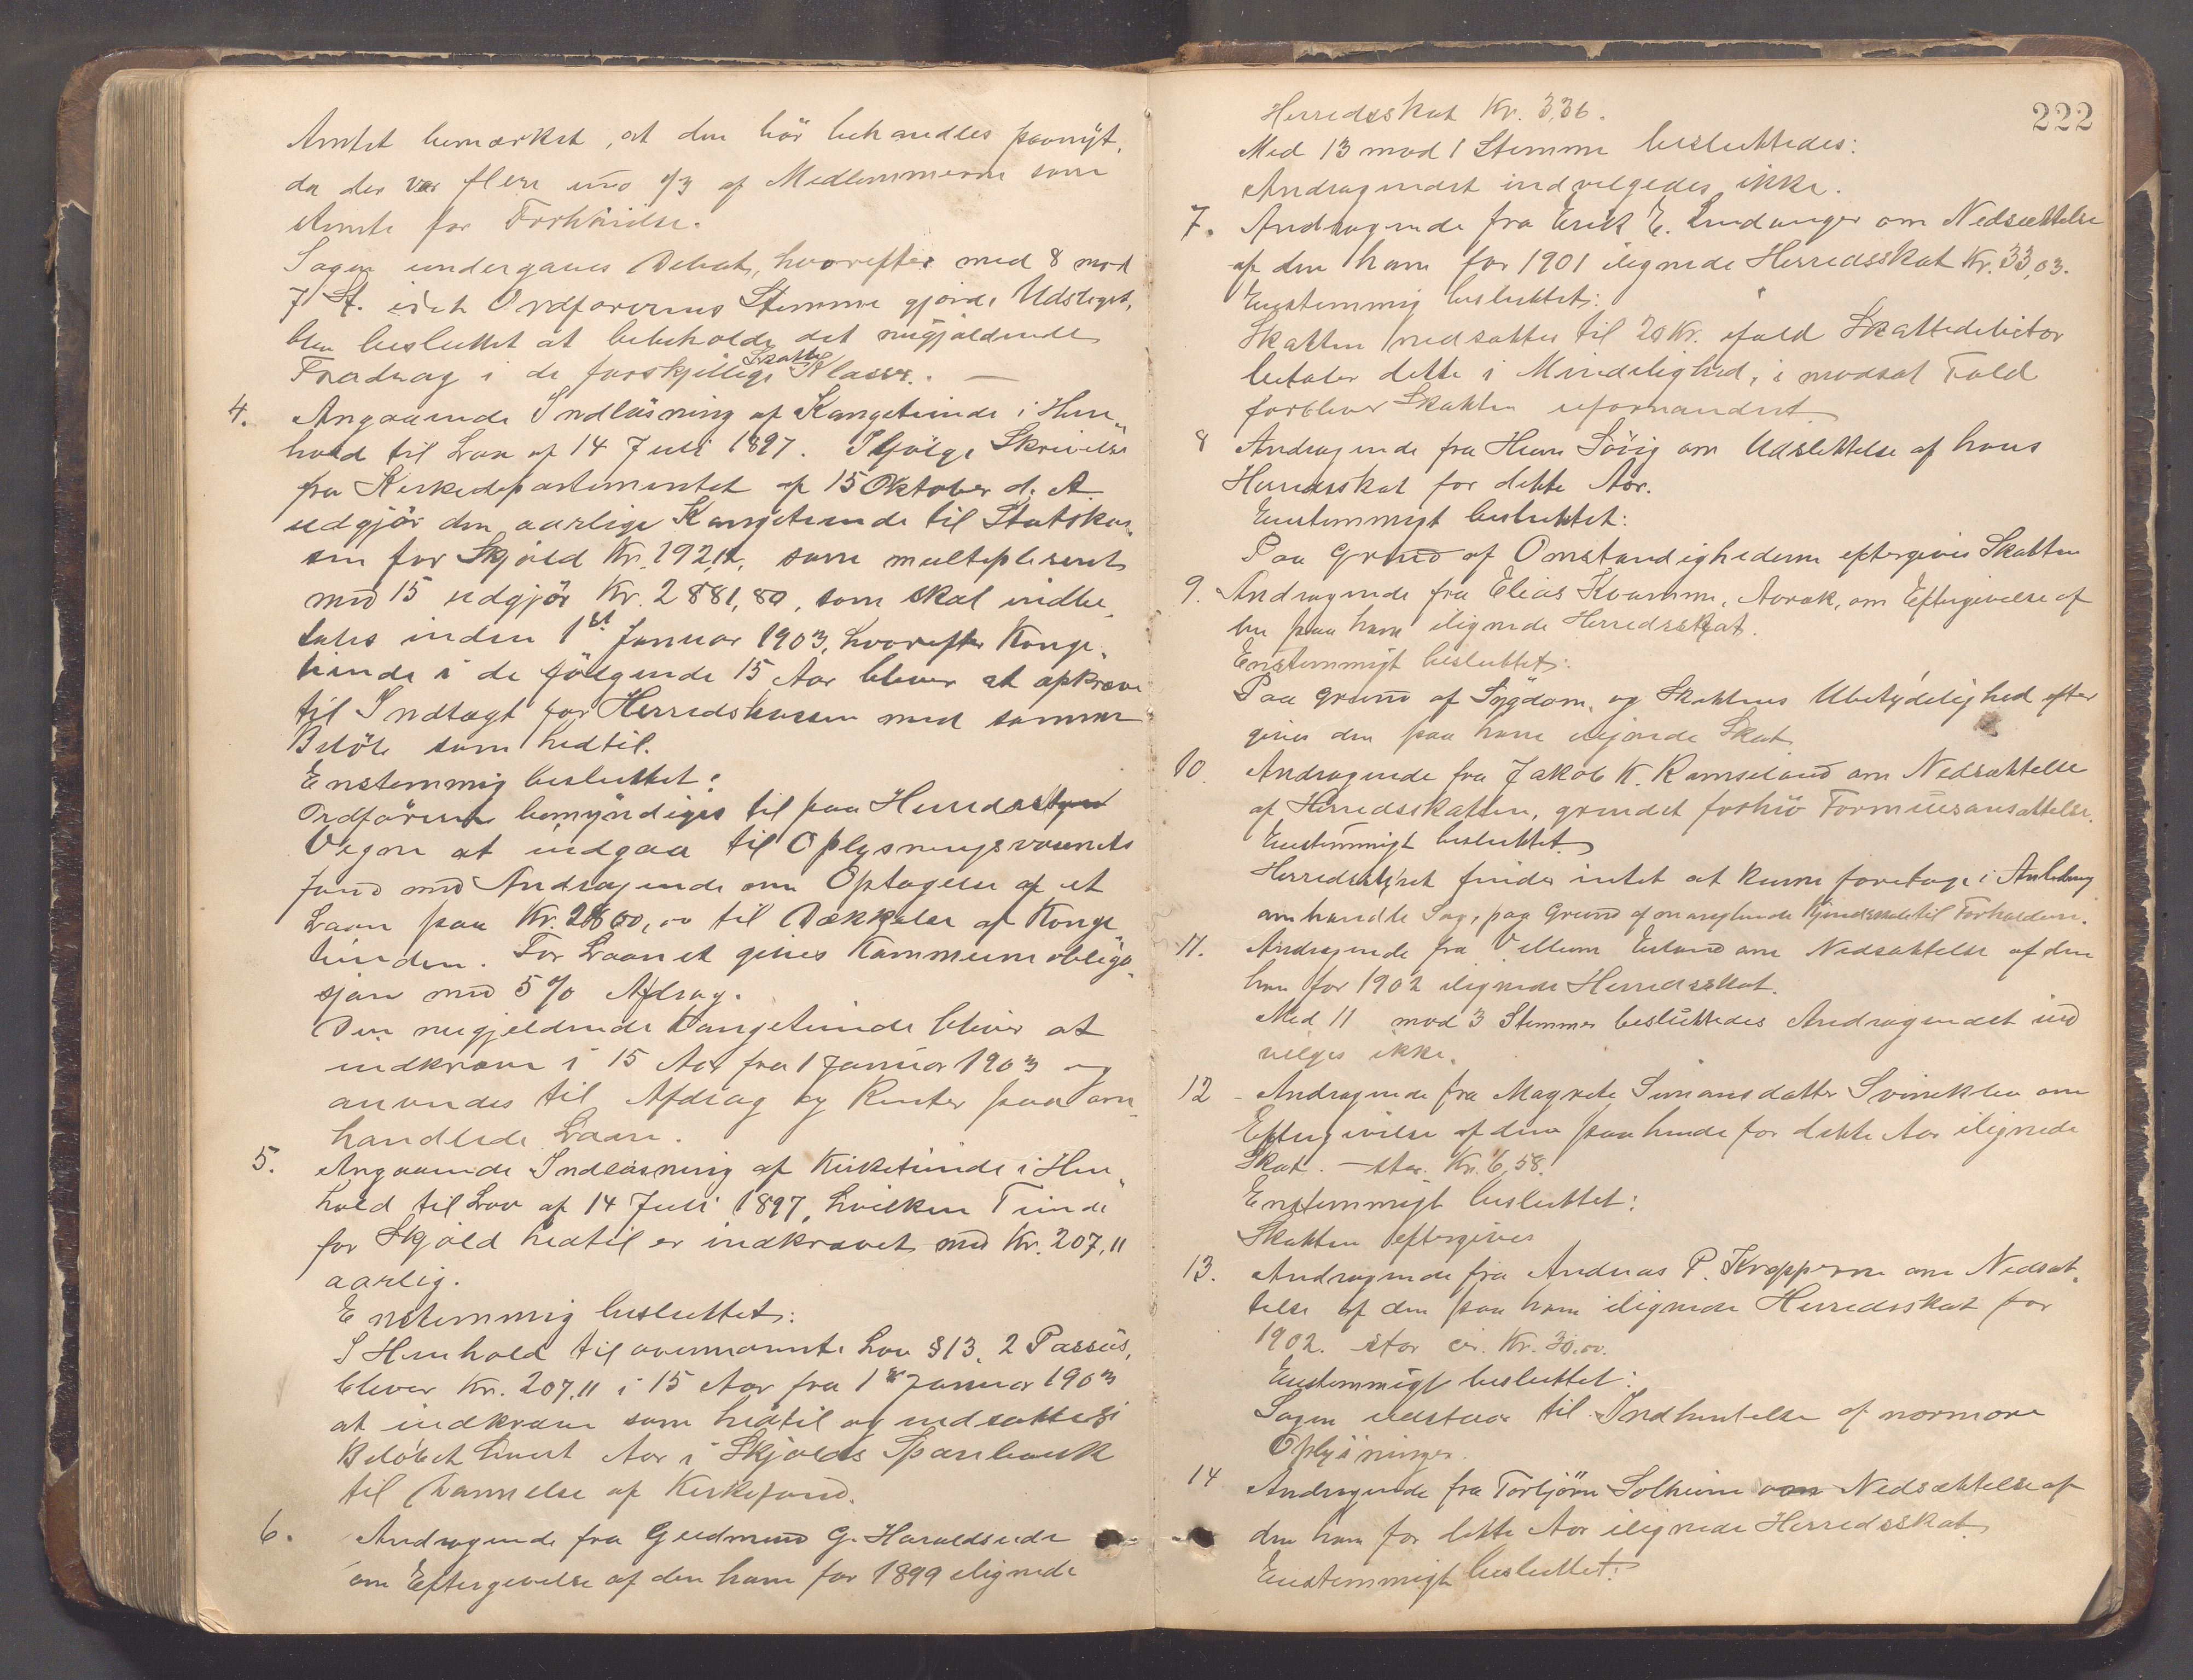 Amtet bemærket, at den bör behandles paanyt,
da der var flere end 1/3 af Medlemmerne som
stemte for Forhöielse.
Sagen undergaves Debat, hvorefter med 8 mod
7 St. idet Ordförerens Stemme gjorde Udslaget,
blev besluttet at bebeholde det nugjældende
Fradrag i de forskjellige Skatte Klasser. —
4. Angaaende Indlösning af Kongetiende i Hen„
hold til Lov af 14 Juli 1897. Ifölge Skrivelse
fra Kirkedepartementet af 15 Oktober d. A.
udgjör den aarlige Kongetiende til Statskas„
sen for Skjold Kr. 192,12, som multipliseret
med 15 udgjör Kr. 2881,80, som skal indbe„
tales inden 1st Januar 1903, hvorefter Konge„
tiende i de fölgende 15 Aar bliver at opkræve
til Indtægt for Herredskassen med samme
Belöb som hedtil.
Enstemmig besluttet:
Ordföreren bemyndiges til paa Herredsstyrets
Vegne at indgaa til Oplysningsvæsenets
fond med Andragende om Optagelse af et
Laan paa Kr. 2800,00 til Dækkelse af Konge„
tienden. For Laanet gives Kommuneobliga„
sjon med 5 % Afdrag.
Den nugjeldende Kongetiende bliver at
indkræve i 15 Aar fra 1 Januar 1903 og
anvendes til Afdrag og Renter paa om„
handlede Laan.
5. Angaaende Indlösning af Kirketiende i Hen„
hold til Lov af 14 Juli 1897, hvilken Tiende
for Skjold hedtil er indkrævet med Kr. 207,11
aarlig.
Enstemmig besluttet:
I Henhold til ovennævnte Lov § 13, 2 Passus,
bliver Kr. 207,11 i 15 Aar fra 1st Januar 1903
at indkræve som hedtil og indsættes
Belöbet hvert Aar i Skjolds Sparebank
til Dannelse af Kirkefond.
6. Andragende fra Gudmund G. Haraldseide
om Eftergivelse af den ham for 1899 ilignede
222
Herredsskat Kr. 3,36.
Med 13 mod 1 Stemme besluttedes:
Andragendet indvilgedes ikke.
7. Andragende fra Erik E. Lindanger om Nedsættelse
af den ham for 1901 ilignede Herredsskat Kr. 33,03.
Enstemmig besluttet:
Skatten nedsattes til 20 Kr. ifald Skattedebitor
betaler dette i Mindelighed, i modsat Fald
forbliver Skatten uforandret
8 Andragende fra Hans Sörig om Udslettelse af hans
Herredsskat for dette Aar.
Enstemmigt besluttet:
Paa Grund af Omstændighederne eftergives Skatten
9. Andragende fra Elias Kvamme, Aarak, om Eftergivelse af
den paa ham ilignede Herredsskat.
Enstemmigt besluttet:
Paa grund af Sygdom, og Skattens Ubetydelighed efter
gives den paa ham ilignede Skat
10. Andragende fra Jakob K. Ramseland om Nedsættelse
af Herredsskatten, grundet forhöi Formuesansættelse.
Enstemmigt besluttet
Herredsstyret finder intet at kunne foretage i Anledning
omhandlte Sag, paa Grund af manglende Kjendskab til Forholdene.
11. Andragende fra Villum Eiland om Nedsættelse af den
ham for 1902 ilignede Herredsskat.
Med 11 mod 3 Stemmer besluttedes Andragendet ind
vilges ikke.
12 - Andragende fra Magrete Simonsdatter Svineklev om
Eftergivelse af den paa hende for dette Aar ilignede
Skat. — stor Kr. 6,58.
Enstemmigt besluttet:
Skatten eftergives
13. Andragende fra Andreas P. Kropperne om Nedsæt„
telse af den paa ham ilignede Herredsskat for
1902. stor cir. Kr. 30,00.
Enstemmigt besluttet:
Sagen udstaar til Indhentelse af nærmere
Oplysninger.
14 Andragende fra Torbjörn Solheim om Nedsættelse af
den ham for dette Aar ilignede Herredsskat
Enstemmigt besluttet: